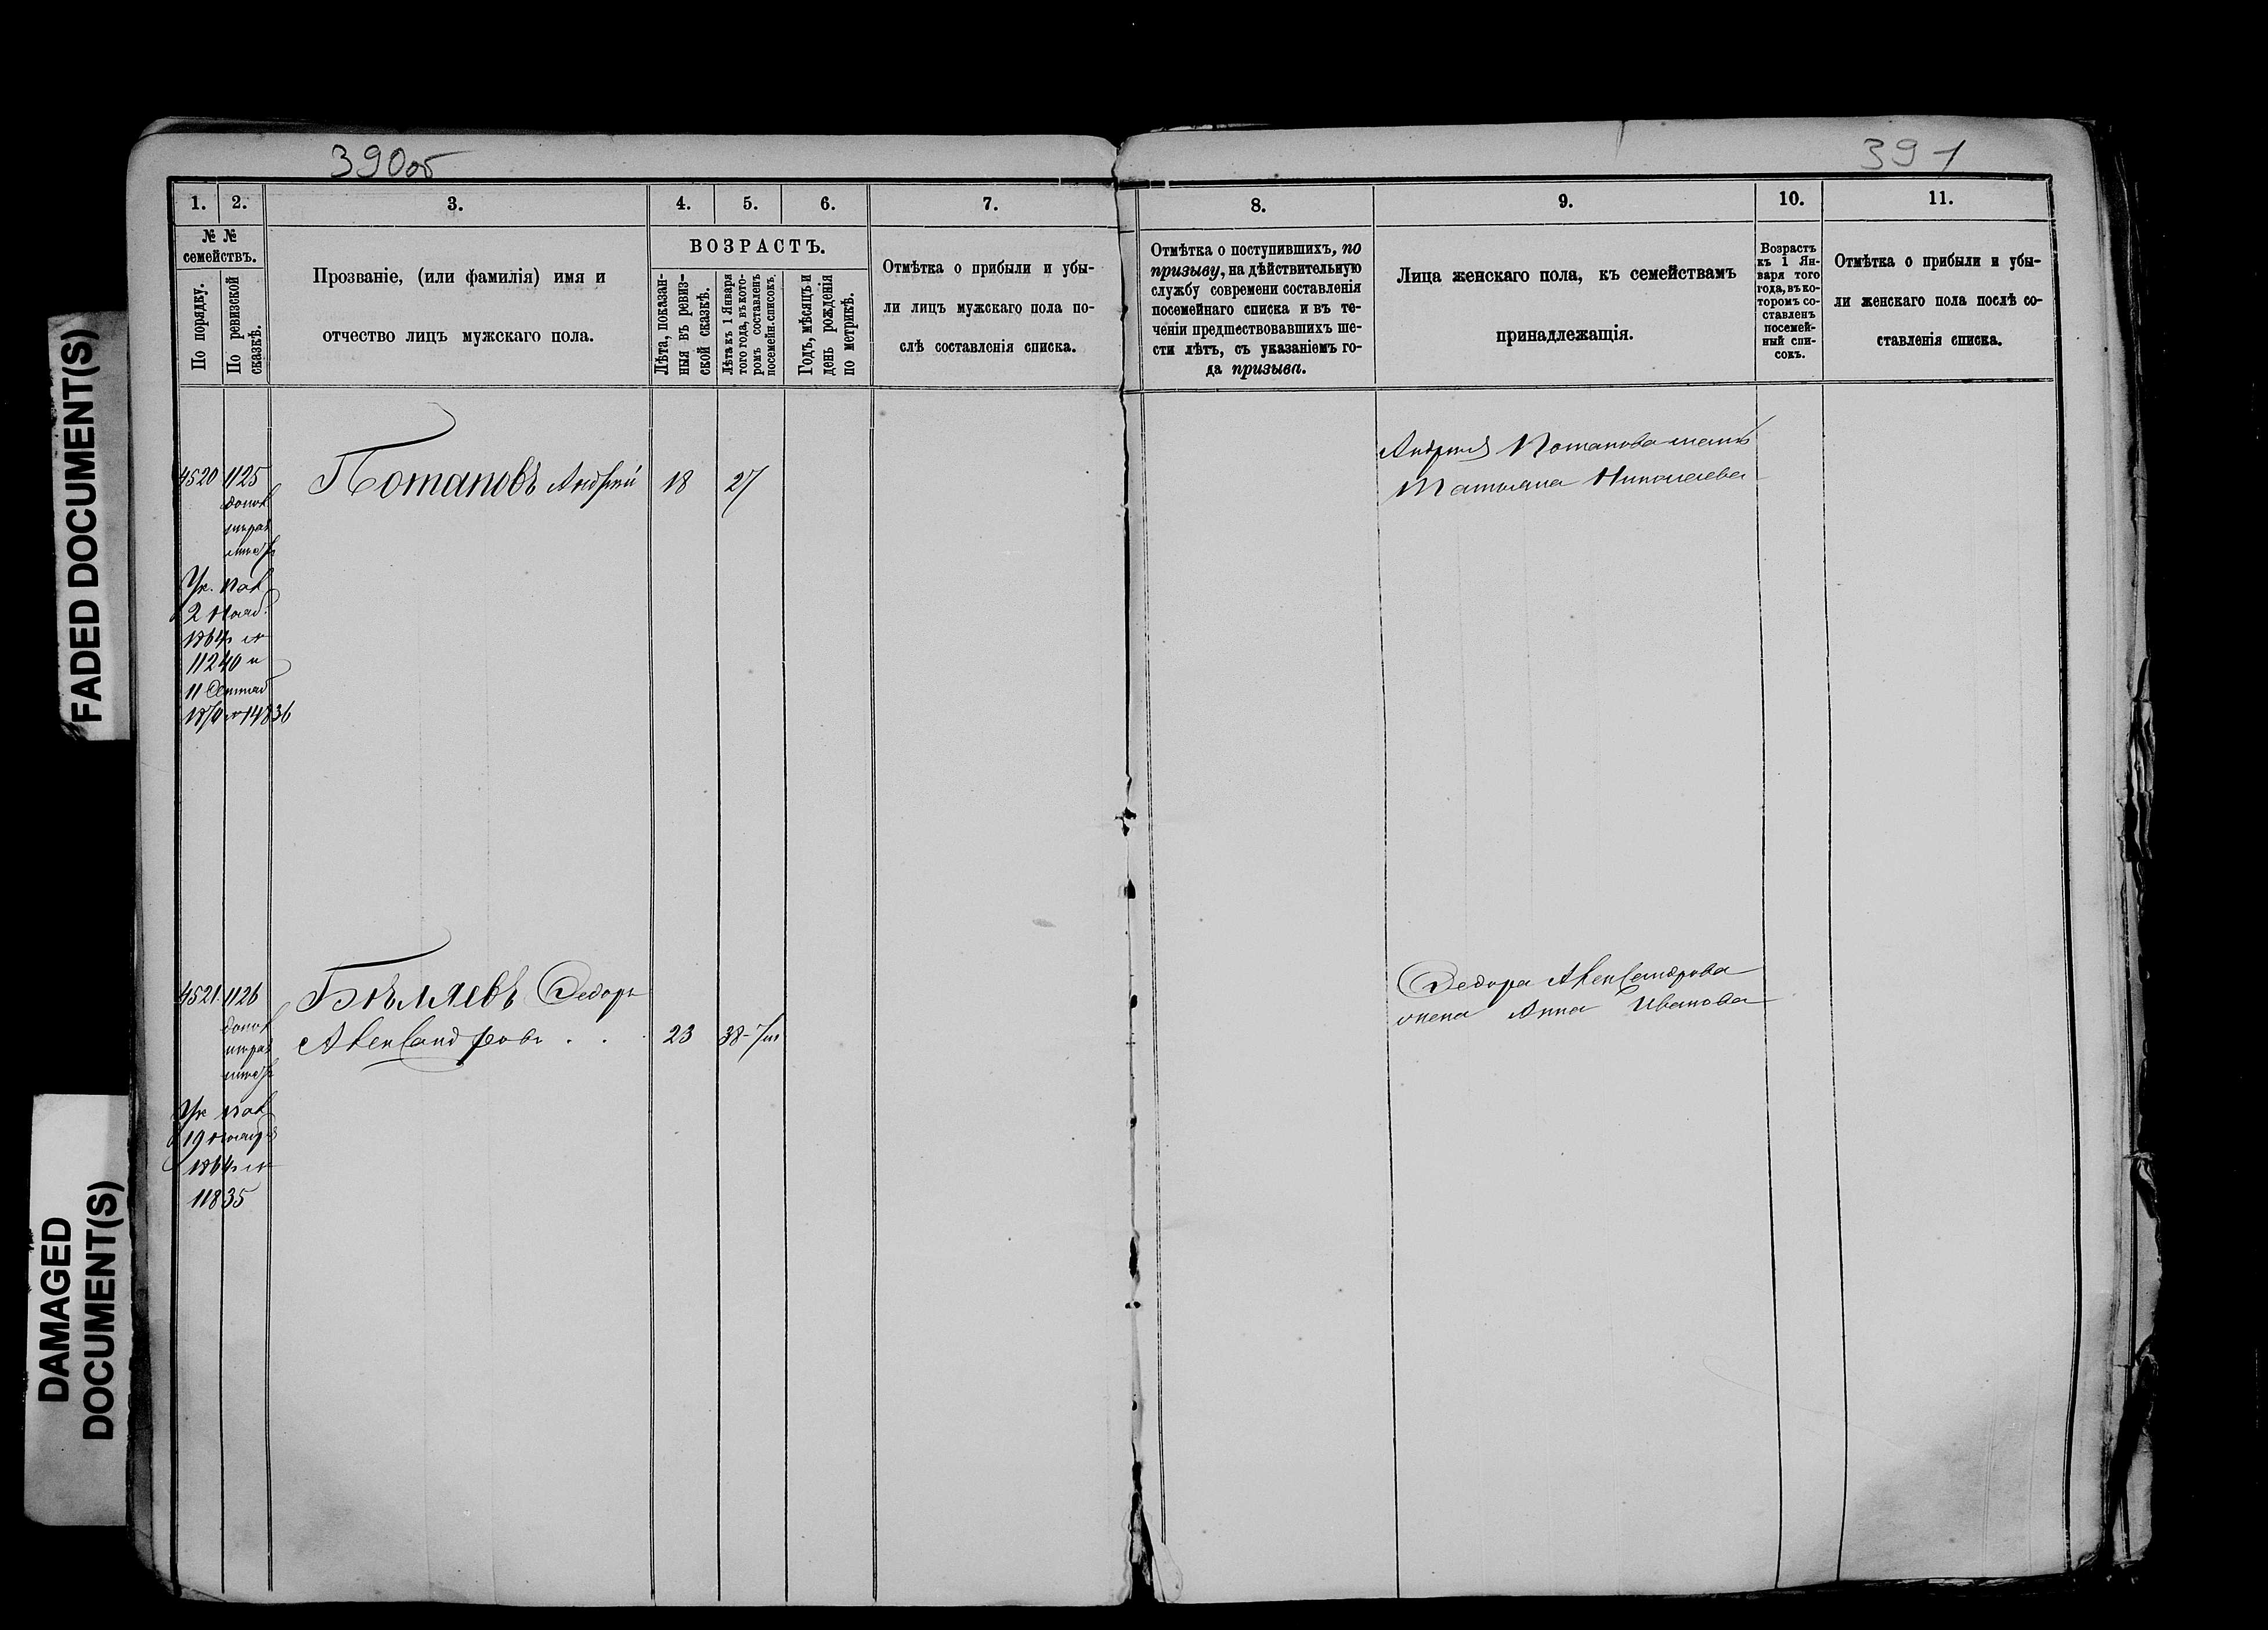 390об
391
1.
2.
3.
4.
5.
6.
7.
8.
9.
10.
11.
№ №
семействъ.
По порядку.
По ревизской
сказкѣ.
Прозваніе, (или фамилія) имя и
отчество лицъ мужскаго пола.
ВОЗРАСТЪ.
Лѣта, показан-
ныя въ ревиз-
ской сказкѣ.
Лѣта къ 1 Января
того года, въ кото-
ромъ составленъ
посемейн. списокъ.
Годъ, мѣсяцъ и
день рожденія
по метрикѣ.
Отмѣтка о прибыли и убы-
ли лицъ мужскаго пола по-
слѣ составленія списка.
Отмѣтка о поступившихъ, по
призыву, на дѣйствительную
службу современи составленія
посемейнаго списка и въ те-
ченіи предшествовавшихъ ше-
сти лѣтъ, съ указаніемъ го-
да призыва.
Лица женскаго пола, къ семействамъ
принадлежащія.
Возрастъ
къ 1 Ян-
варя того
года, въ ко-
торомъ со-
ставленъ
посемей-
ный спи-
сокъ.
Отмѣтка о прибыли и убы-
ли женскаго пола послѣ со-
ставленія списка.
4520 1125
Потаповъ Андрей 18 27
Андрея Потапова мать
Татьяна Николаева
Ук. пал
2 Нояб.
1864 №
11240 и
11
14836
4521 1126
Бѣляевъ Федоръ
Александровъ . . 23 38
Федора Александрова
жена Анна Иванова
Ук пал
19
1864 №
11835
FADED DOCUMENT(S)
DAMAGED
DOCUMENT(S)